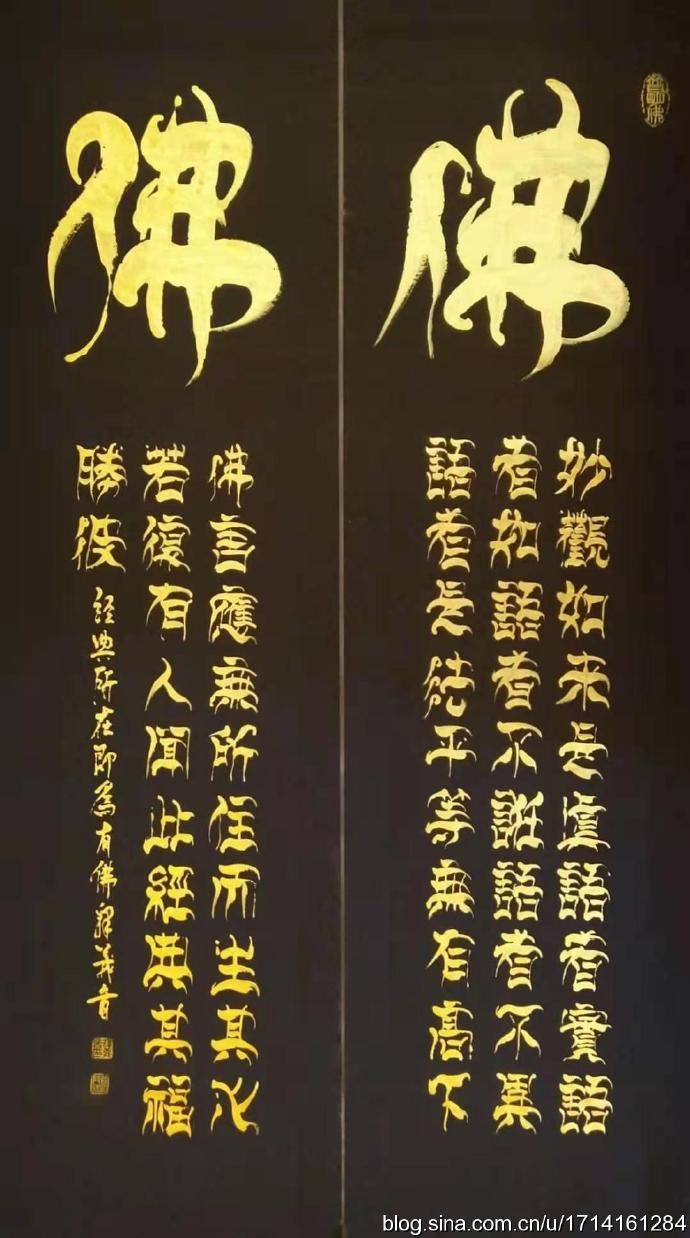 佛
妙觀如来是真語者實語
者如語者不誑語者不異
語者是法平等無有高下
佛
佛言應無所住而生其心
若復有人聞此經典其福
勝彼
經典所在即為有佛 釋義音
blog.sina.com.cn/u/1714161284